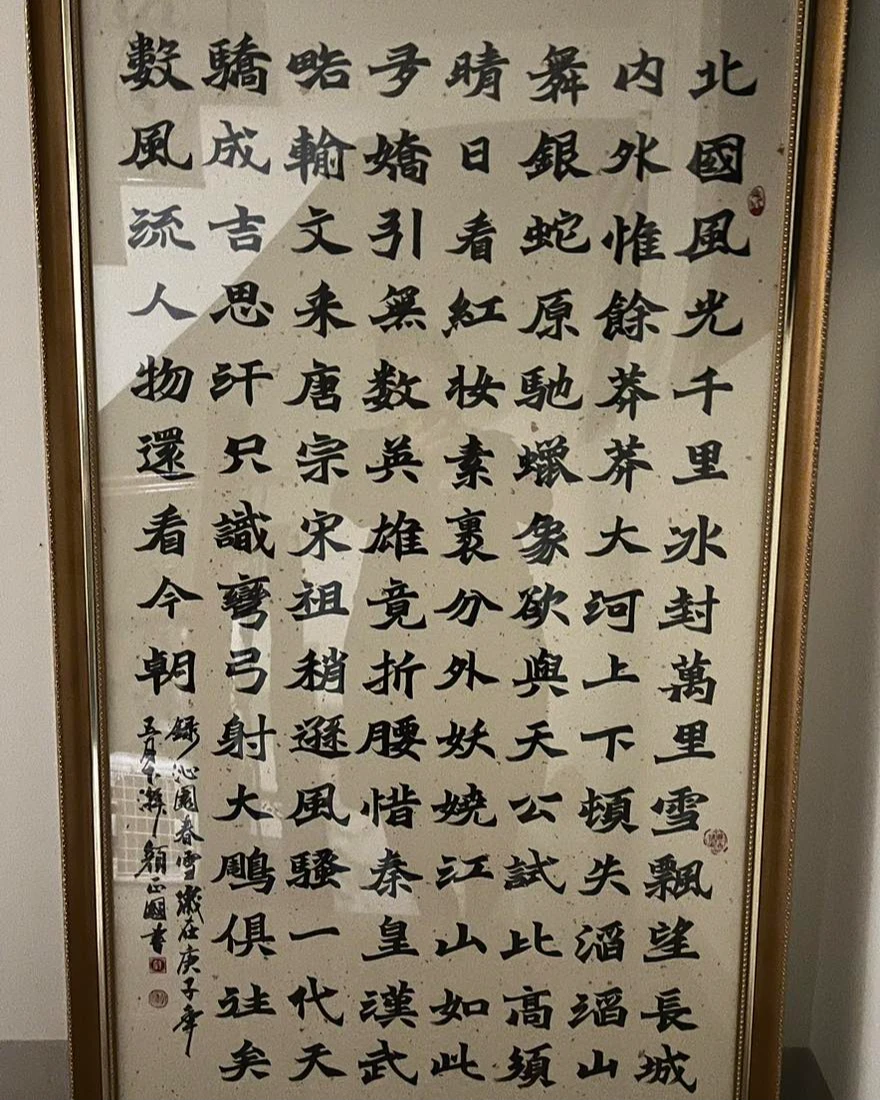 北國風光千里冰封萬里雪飄望長城
内外惟餘莽莽大河上下頓失滔滔山
舞銀蛇原馳蠟象欲與天公試比高須
晴日看紅妝素裹分外妖嬈江山如此
多嬌引無数英雄竟折腰惜秦皇漢武
略輸文采唐宗宋祖稍遜風騷一代天
驕成吉思汗只識彎弓射大鵰俱往矣
數風流人物還看今朝
錄沁園春雪歲在庚子年
五月下澣顏正國書